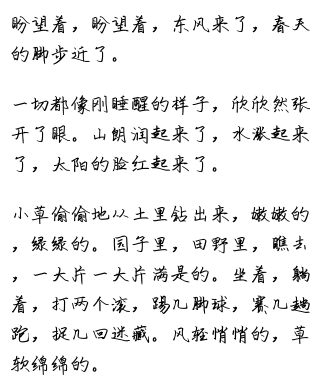 盼望着，盼望着，东风来了，春天
的脚步近了。
一切都像刚睡醒的样子，欣欣然张
开了眼。山朗润起来了，水涨起来
了，太阳的脸红起来了。
小草偷偷地从土里钻出来，嫩嫩的
，绿绿的。园子里，田野里，瞧去
，一大片一大片满是的。坐着，躺
着，打两个滚，踢几脚球，赛几趟
跑，捉几回迷藏。风轻悄悄的，草
软绵绵的。